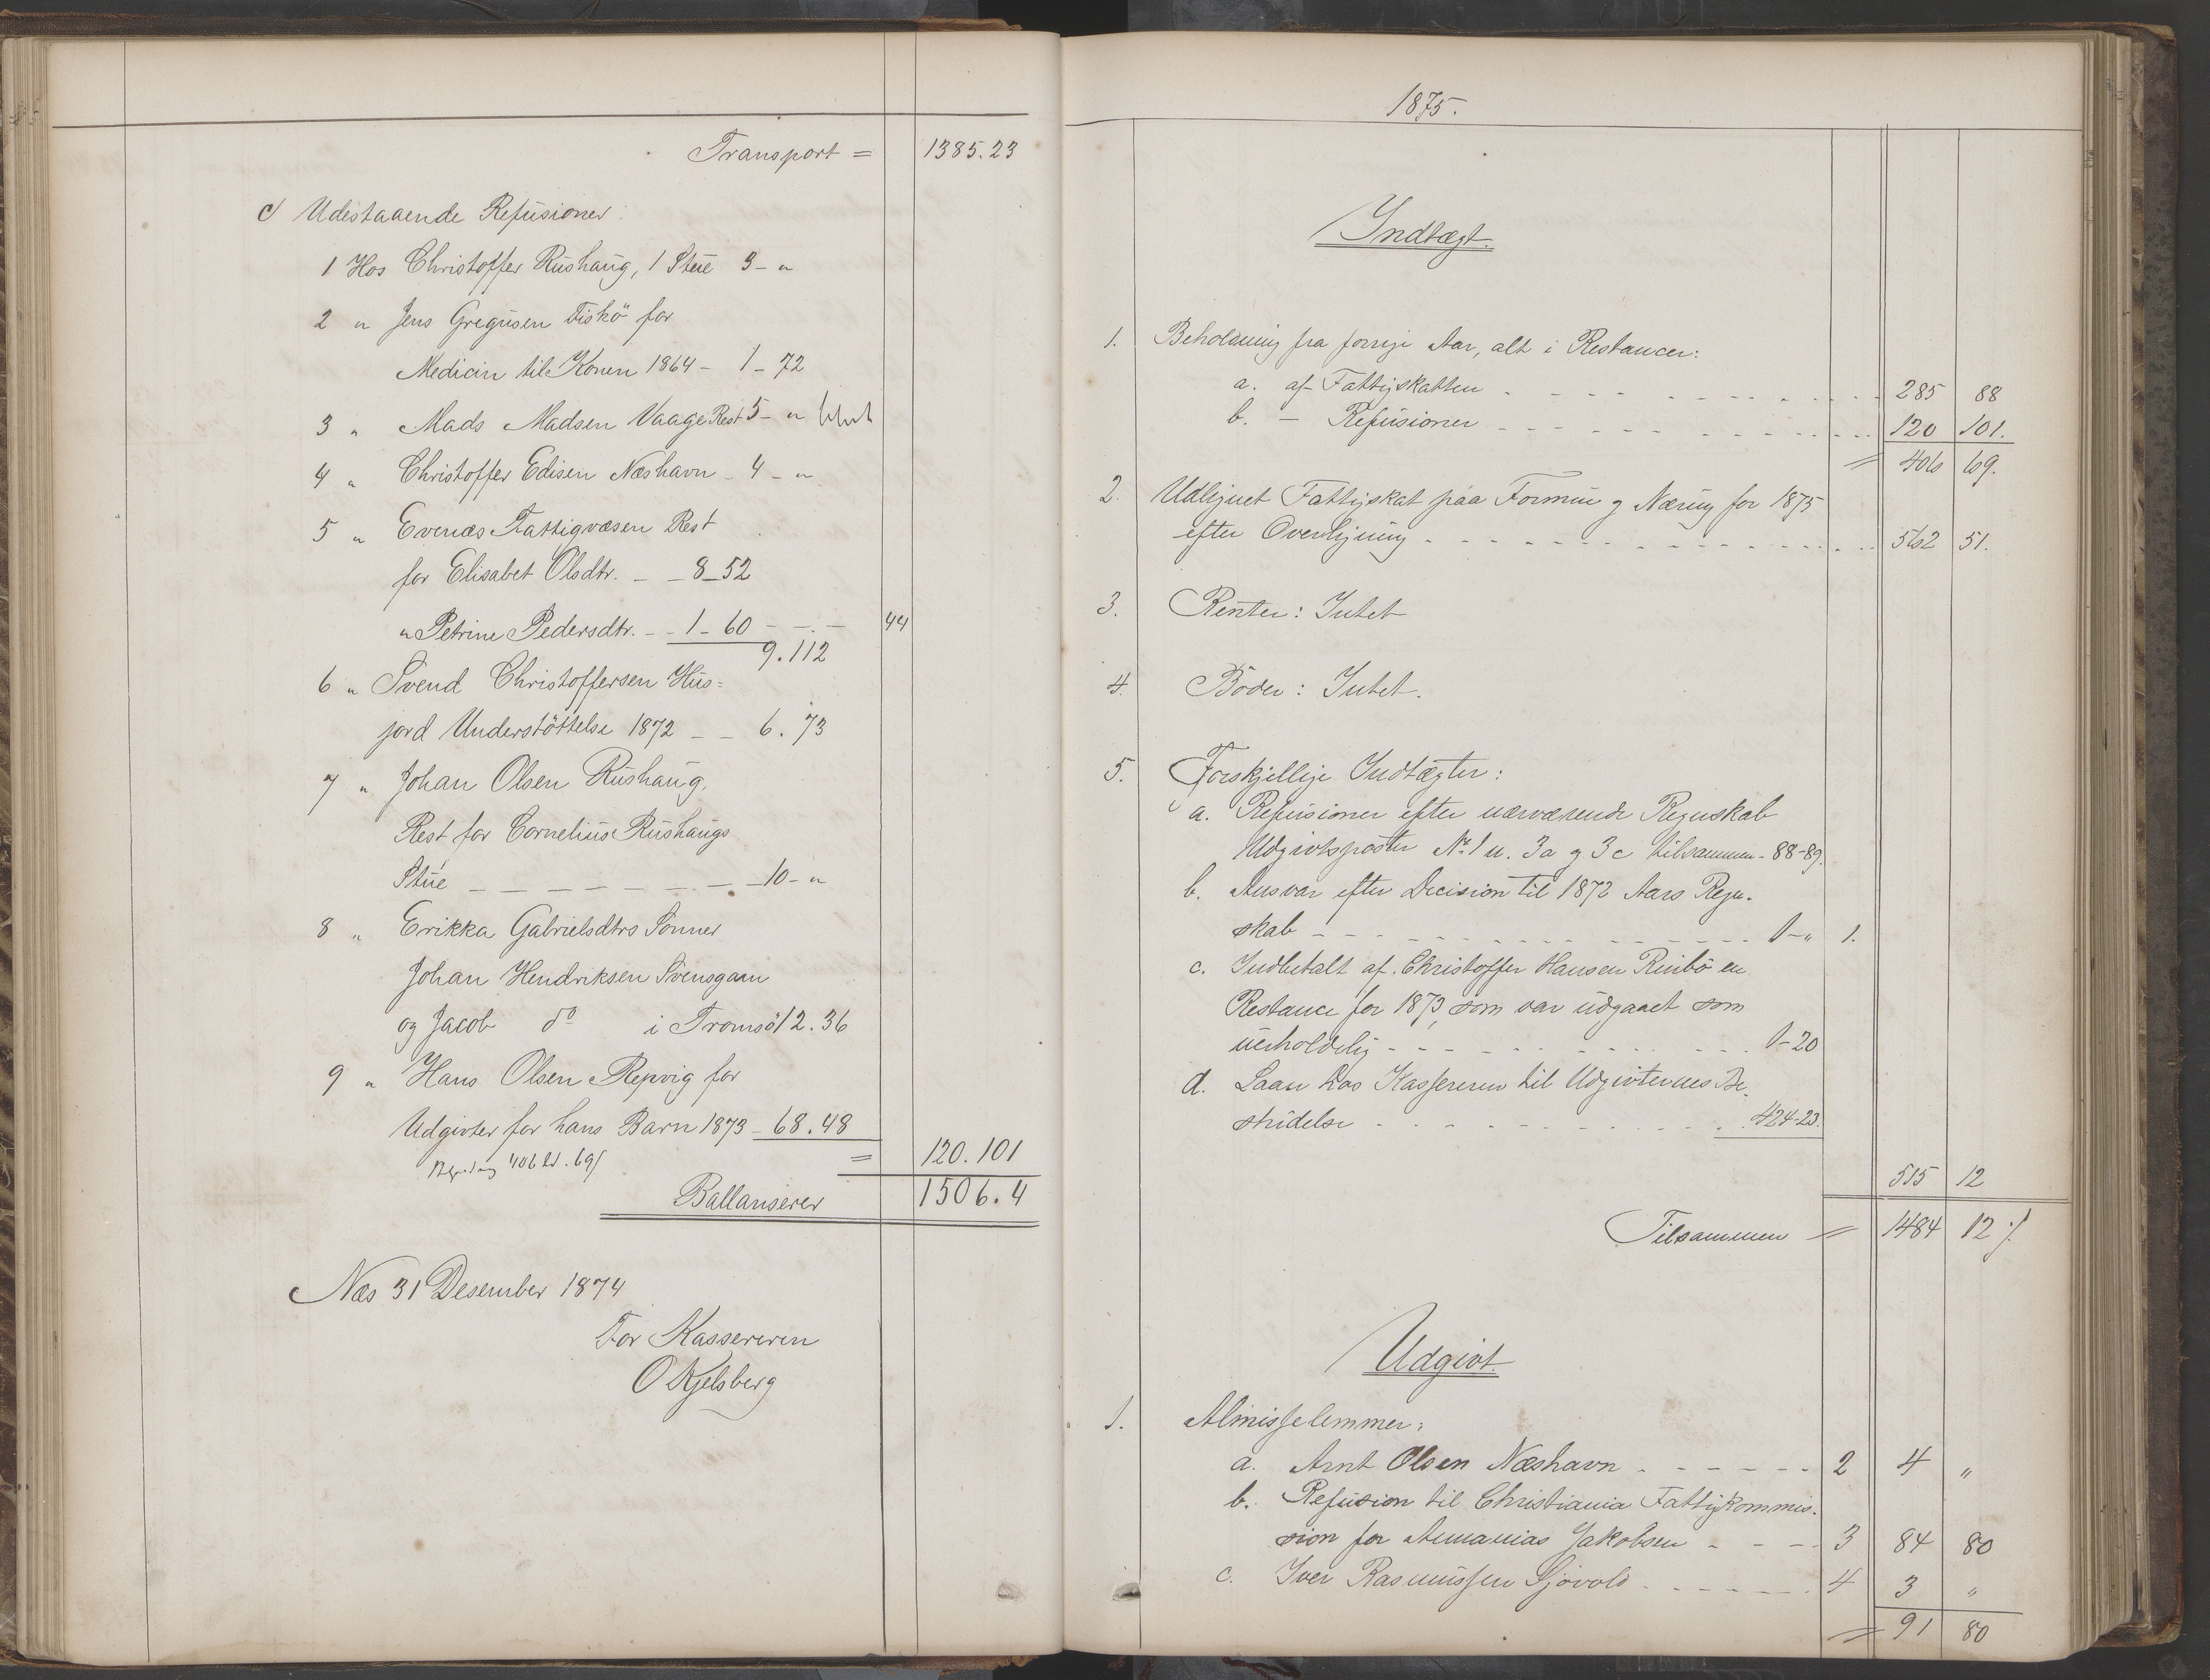 Transport = 1385.23
c/ Udestaaende Refusioner:
1 Hos Christoffer Rushaug, 1 Stue 3 - "
2 " Jens Gregusen Fiskö for
Medicin til Konen 1864 - 1 - 72
3 " Mads Madsen Vaage Rest 5 - "
4 " Christoffer Edisen Næshavn - 4 - "
5 " Evenæs Fattigvæsen Rest
for Elisabet Olsdtr. - - 8 - 52
" Petrine Pedersdtr. - - 1 - 60 - - - 44
9.112
6 " Svend Christoffersen Hus=
jord Understöttelse 1872 - - 6.73
7 " Johan Olsen Rushaug,
Rest for Cornelius Rushaugs
Stue - - - - - - - 10 - "
8 " Erikka Gabrielsdtrs Sönner
Johan Hendriksen Svensgam
og Jacob do i Tromsö 12.36
9 " Hans Olsen Repvig for
Udgivter for hans Barn 1873 - 68.48
= 120.101
406 . 69
Ballanserer 1506.4
Næs 31 Desember 1874
For Kassereren
O Kjelsberg
1875.
Indtægt.
1. Beholdning fra forrige Aar, alt i Restancer:
a. af Fattigskatten - - - - 285 88
b. - Refusioner - - - - 120 101.
= 406 69.
2. Udlignet Fattigskat paa Formue og Næring for 1875
efter Overligning - - - - 562 51.
3. Renter: Intet
4. Böder: Intet.
5. Forskjellige Indtægter:
a. Refusioner efter nærværende Regnskab
Udgivtsposter No 1 u. 3a og 3c tilsammen - 88-89.
b. Ansvar efter Decision til 1872 Aars Regn-
skab - - - - 1 - " 1.
c. Indbetalt af Christoffer Hansen Rinbö en
Restance for 1873, som var udgaaet som
uerholdelig - - - - 1-20
d. Laan hos Kassereren til Udgivternes Be-
stridelse - - - - 424-23.
515 12
Tilsammen = 1484 12 ./.
Udgivt.
1. Almisselemmer:
a. Arnt Olsen Næshavn - - - - 2 4 "
b. Refusion til Christiania Fattigkommis-
sion for Annanias Jakobsen - - - 3 84 80
c. Iver Rasmussen Sjövold - - - - 4 3 "
= 91 80